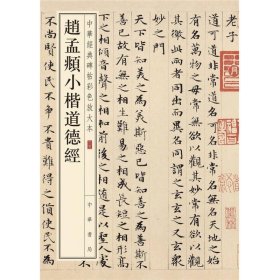 老子
道可道非常道名可名
有名萬物之母常無欲以觀其妙常有欲以觀其
此兩者同出而異名同謂之玄玄之又玄
妙之門
天下皆知美之為美斯惡已皆知善之為
故有無之相生難易之相成長短之相形
之相和前後之相隨是以聖人處無為
中華經典碑帖彩色放大本
趙孟頫小楷道德經
中華書局
不尚賢使民不爭不貴難得之貨使民不為